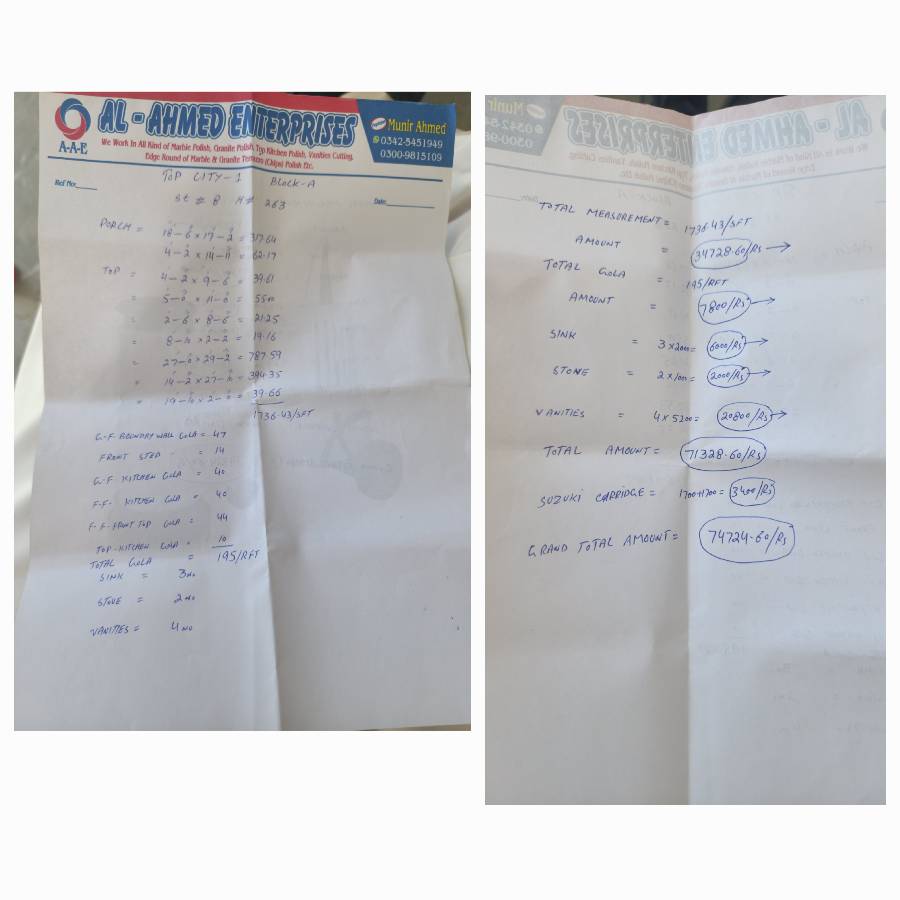 AL - AHMED ENTERPRISES
A-A-E
We Work In All Kind of Marble Polish, Granite Polish, Top Kitchen Polish, Vanities Cutting,
Edge Round of Marble & Granite Terrazzo (Chips) Polish Etc.
Munir Ahmed
0342-5451949
0300-9815109
Ref No:
Date:
TOP CITY-1 BLOCK-A
St # 8 H# 263
PORCH = 18-6 x 17-2 = 317.64
4-2 x 14-11 = 62.17
TOP = 4-2 x 9-6 = 39.61
= 5-0 x 11-0 = 55
= 2-6 x 8-6 = 21.25
= 8-10 x 2-2 = 19.16
= 27-0 x 29-2 = 787.59
= 14-2 x 27-10 = 394.35
= 19-10 x 2-0 = 39.66
1736.43/SFT
G-F BOUNDRY WALL GOLA = 47
FRONT STEP " = 14
G-F KITCHEN GOLA = 40
F-F- KITCHEN GOLA = 40
F-F-FRONT TOP GOLA = 44
TOP-KITCHEN GOLA = 10
TOTAL GOLA = 195/RFT
SINK = 3 NO
STOVE = 2 NO
VANITIES = 4 NO
TOTAL MEASUREMENT = 1736.43/SFT
AMOUNT = 34728.60/Rs
TOTAL GOLA = 195/RFT
AMOUNT = 7800/Rs
SINK = 3 x 2000 = 6000/Rs
STONE = 2 x 1000 = 2000/Rs
VANITIES = 4 x 5200 = 20800/Rs
TOTAL AMOUNT = 71328.60/Rs
SUZUKI CARRIDGE = 1700+1700 = 3400/Rs
GRAND TOTAL AMOUNT = 74724.60/Rs